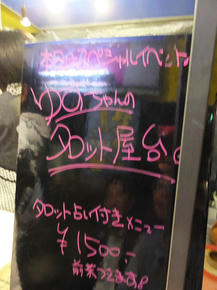 本日のスペシャルイベント
ゆのちゃんの
タロット屋台
タロット占い付きメニュー
¥1500-
前菜つきます